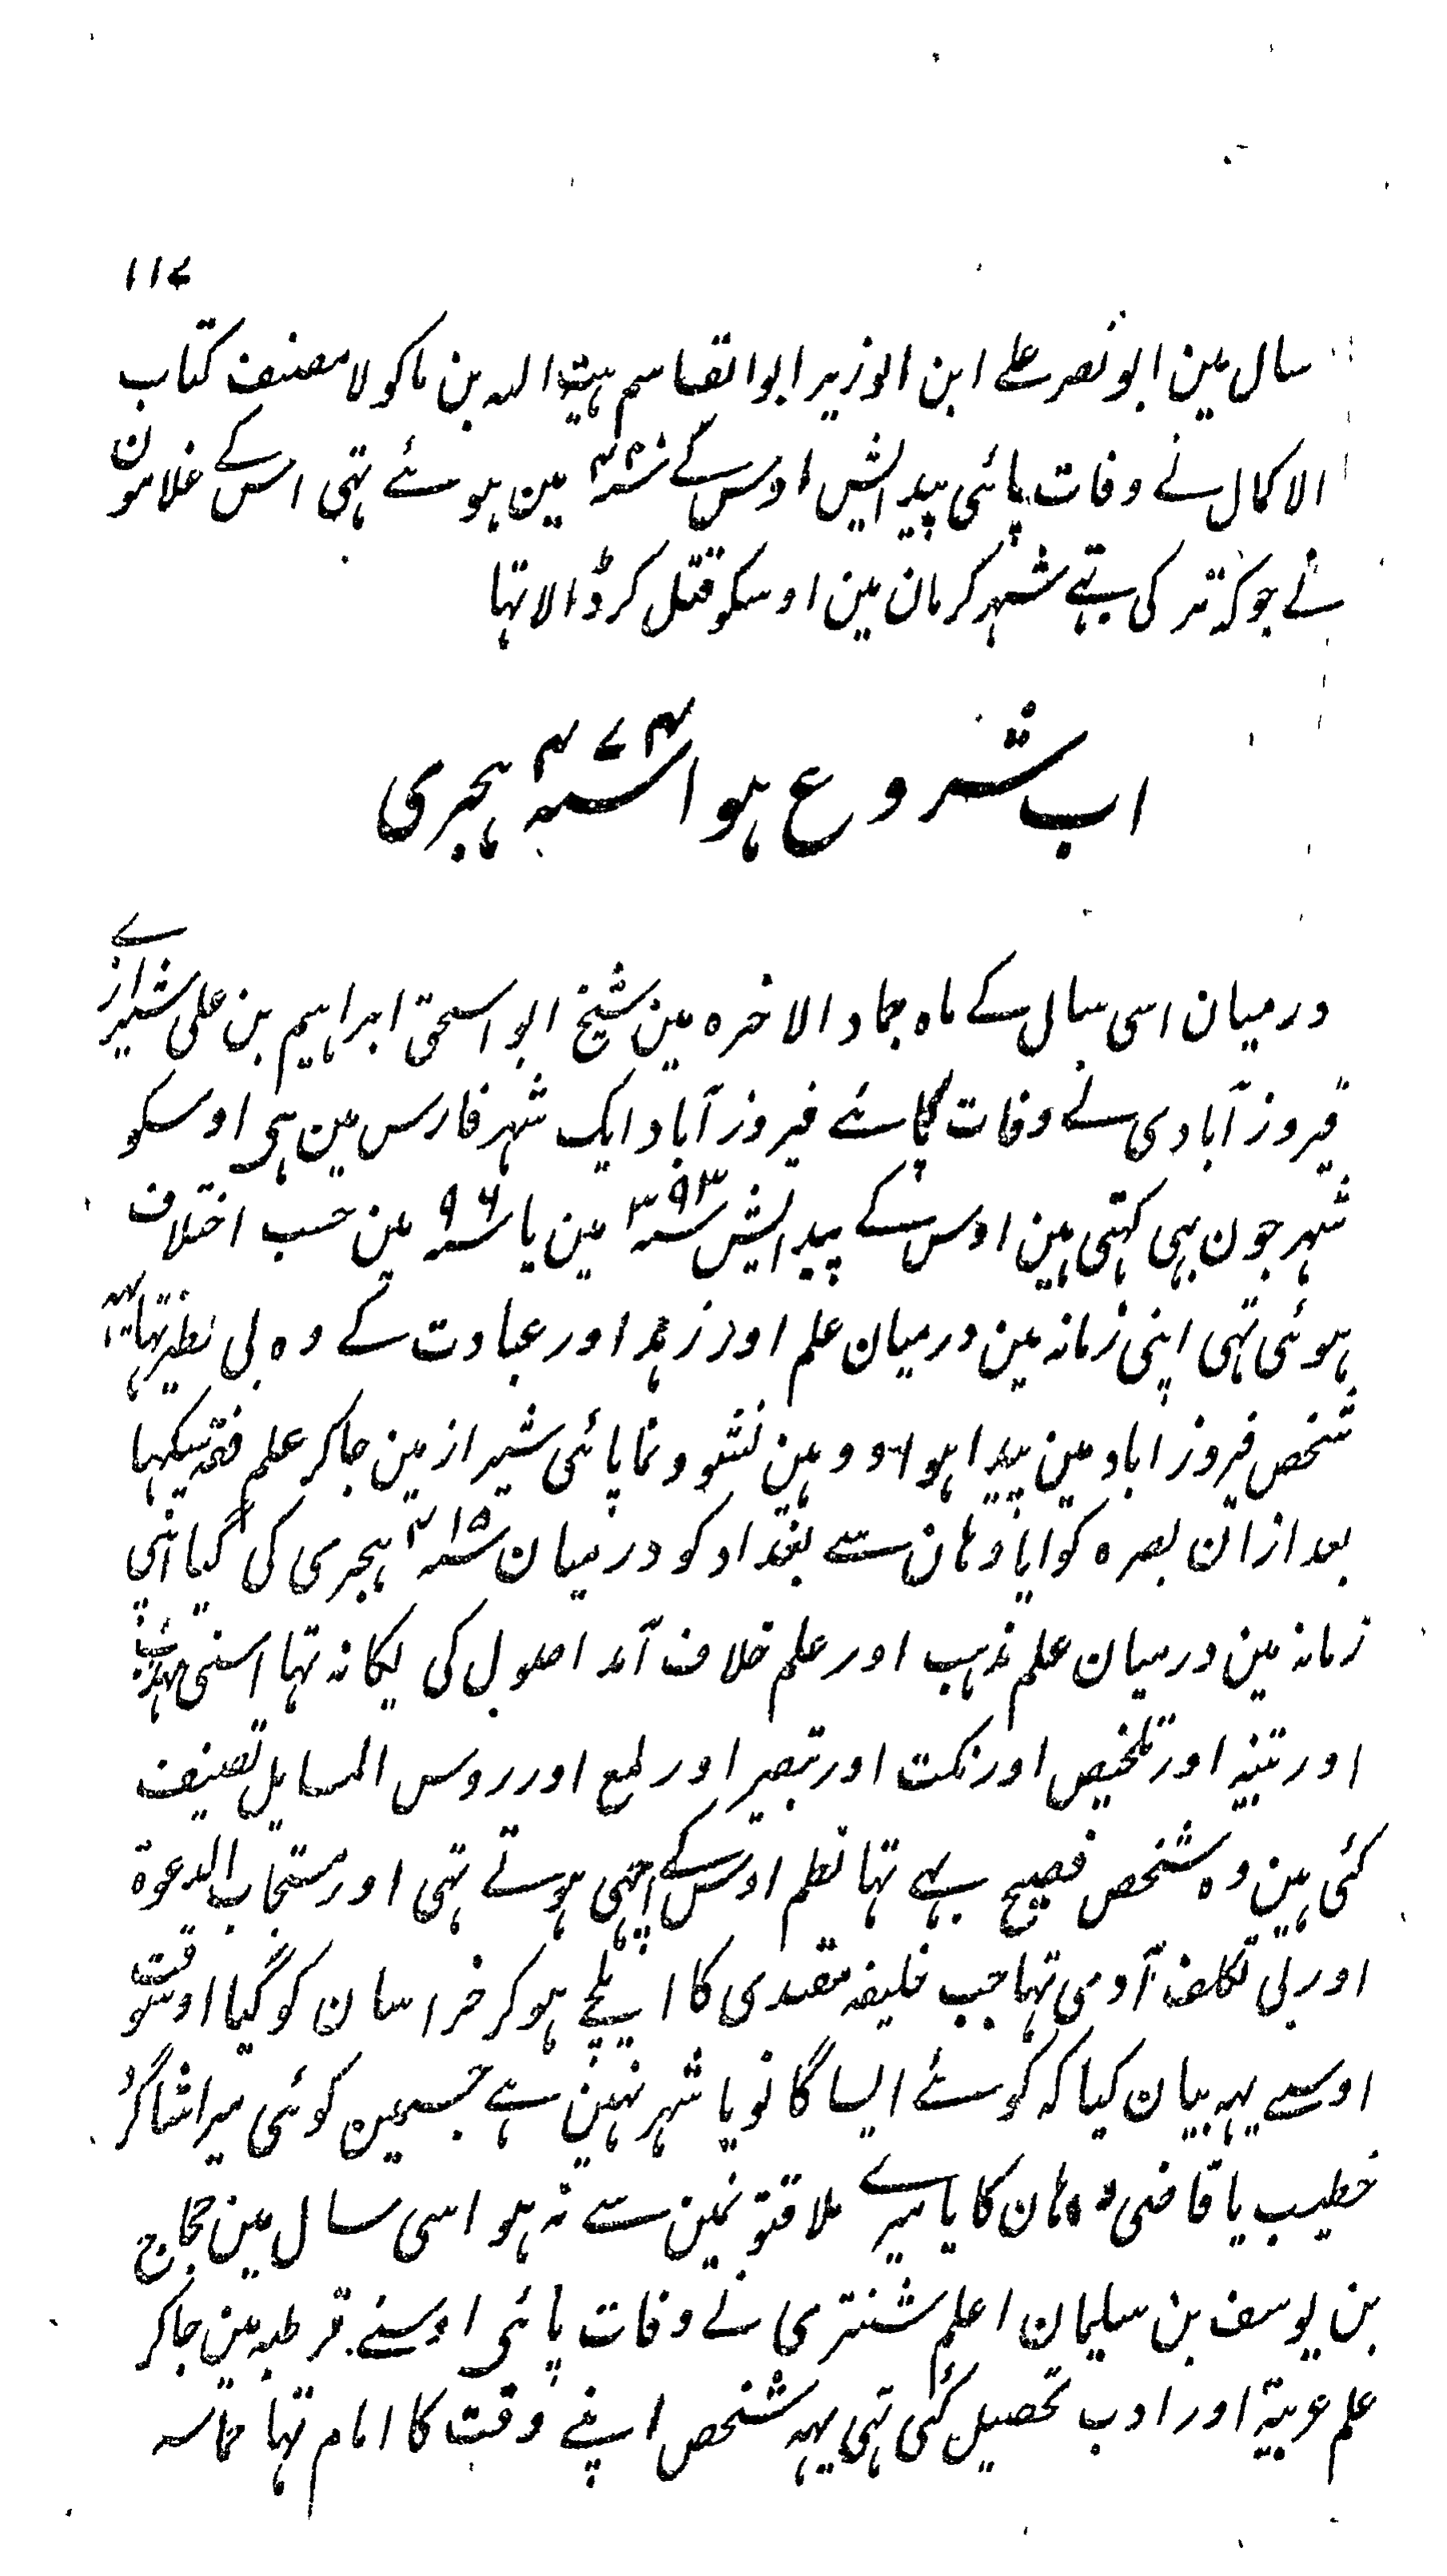 ۱۱۷
سال مین ابو نصر علے ابن الوزیر ابو القاسم ہبتہ اللہ بن ماکولا مصنف کتاب
الاکمال نے وفات پائی پیدایش اوس کے سنہ ۴۲۰ مین ہوئے تہی اس کے غلامون
نے جو کہ ترکی تہے شہر کرمان مین اوسکو قتل کر ڈالا تہا
اب شروع ہوا سنہ ۴۷۶ ہجری
درمیان اسی سال کے ماہ جماد الاخرہ مین شیخ ابو اسحق ابراہیم بن علی شیرازے
فیروز آبادی نے وفات پائے فیروز آباد ایک شہر فارس مین ہی اوسکو
شہر جون بہی کہتی ہین اوس کے پیدایش سنہ ۳۹۳ مین یا سنہ ۹۶ مین حسب اختلاف
ہوئی تہی اپنی زمانہ مین درمیان علم اور زہد اور عبادت کے وہ بی نظیر تہا یہہ
شخص فیروز اباد مین پیدا ہوا اور وہین نشو و نما پائی شیراز مین جا کر علم فقہ سیکہا
بعد ازان بصرہ کو ایا وہان سے بغداد کو درمیان سنہ ۴۱۵ ہجری کی گیا اپنی
زمانہ مین درمیان علم مذہب اور علم خلاف آمد اصول کی یکانہ تہا اسنی مہذب
اور تنبیہ اور تلخیص اور نکت اور تبصیر اور لمع اور روس المسایل تصنیف
کئی ہین وہ شخص فصیح بہے تہا نظم اوس کے اچہی ہوتے تہی اور مستجاب الدعوۃ
اور بی تکلف آدمی تہا جب خلیفہ مقتدی کا ایلچے ہو کر خراسان کو گیا اوسوقت
اوسے یہہ بیان کیا کہ کوئے ایسا گانو یا شہر نہین ہے جسمین کوئی میرا شاگرد
خطیب یا قاضی وہان کا یا میرے ملاقتوئین سے نہ ہو اسی سال مین حجاج
بن یوسف بن سلیمان اعلم شنتری نے وفات پائی اوسنے قرطبہ مین جا کر
علم عربیۃ اور ادب تحصیل کئی تہی یہہ شخص اپنے وقت کا امام تہا حماسہ